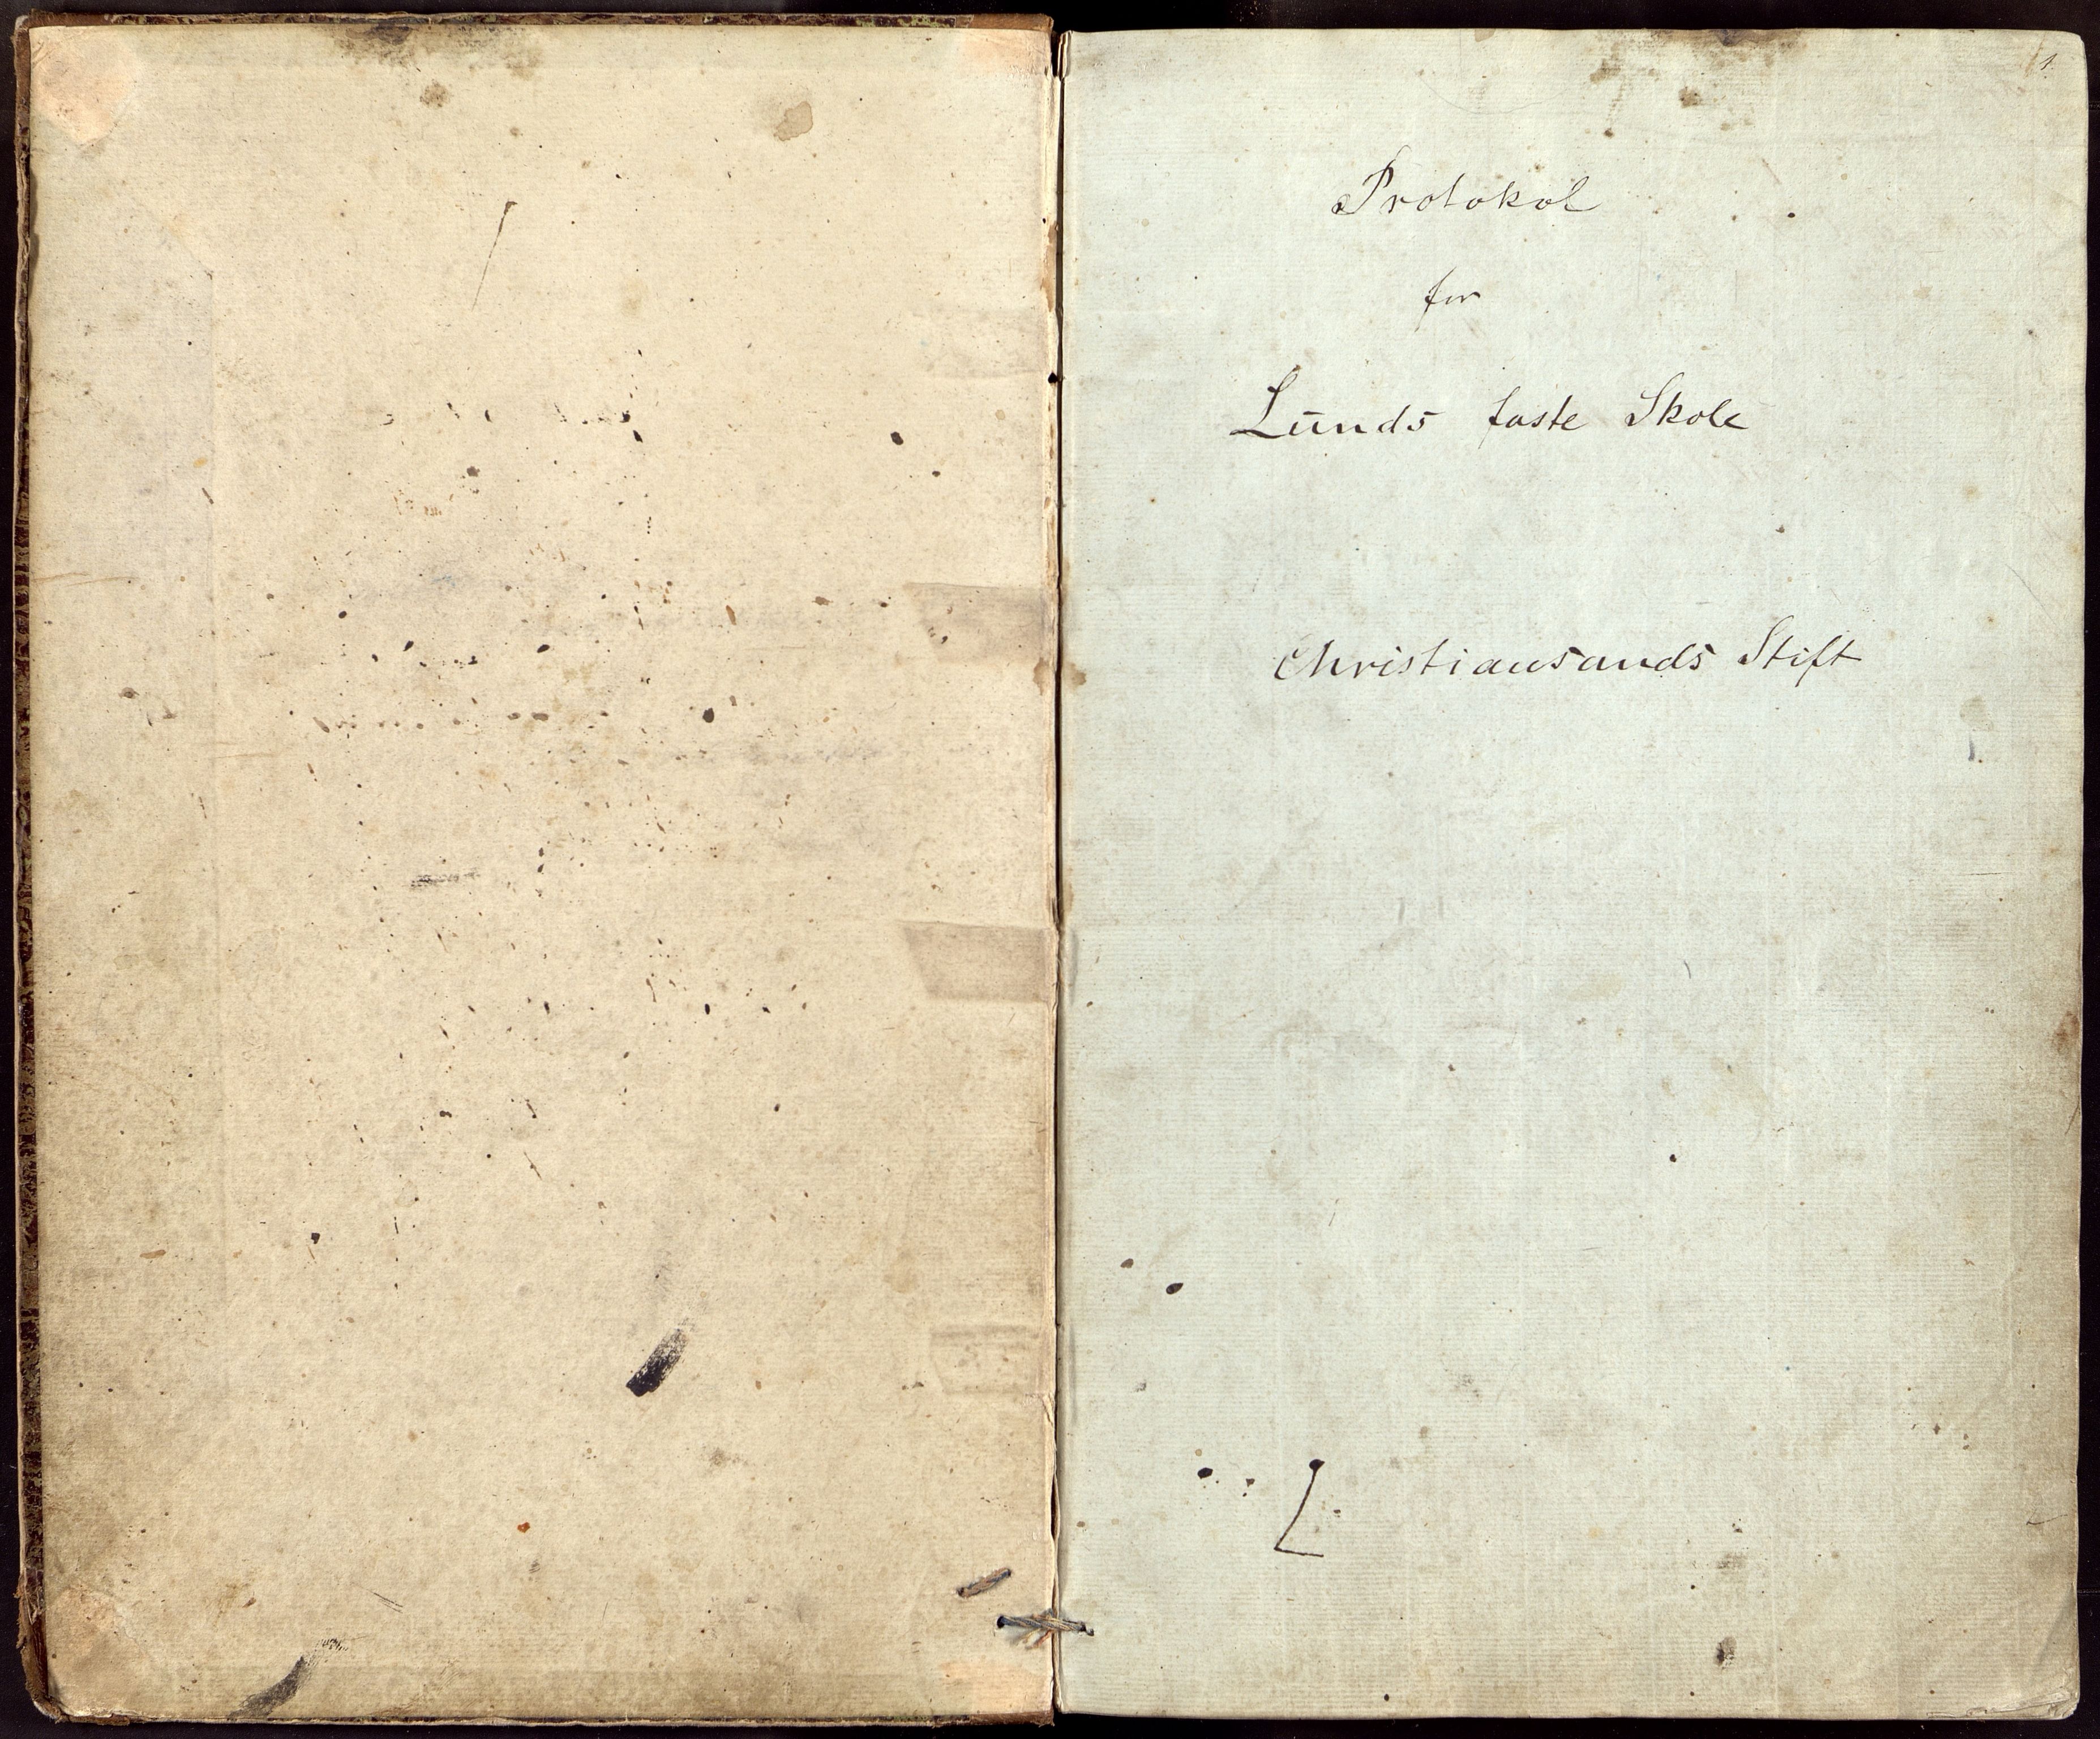 1
Protokol
for
Lunds faste Skole
Christiansands Stift